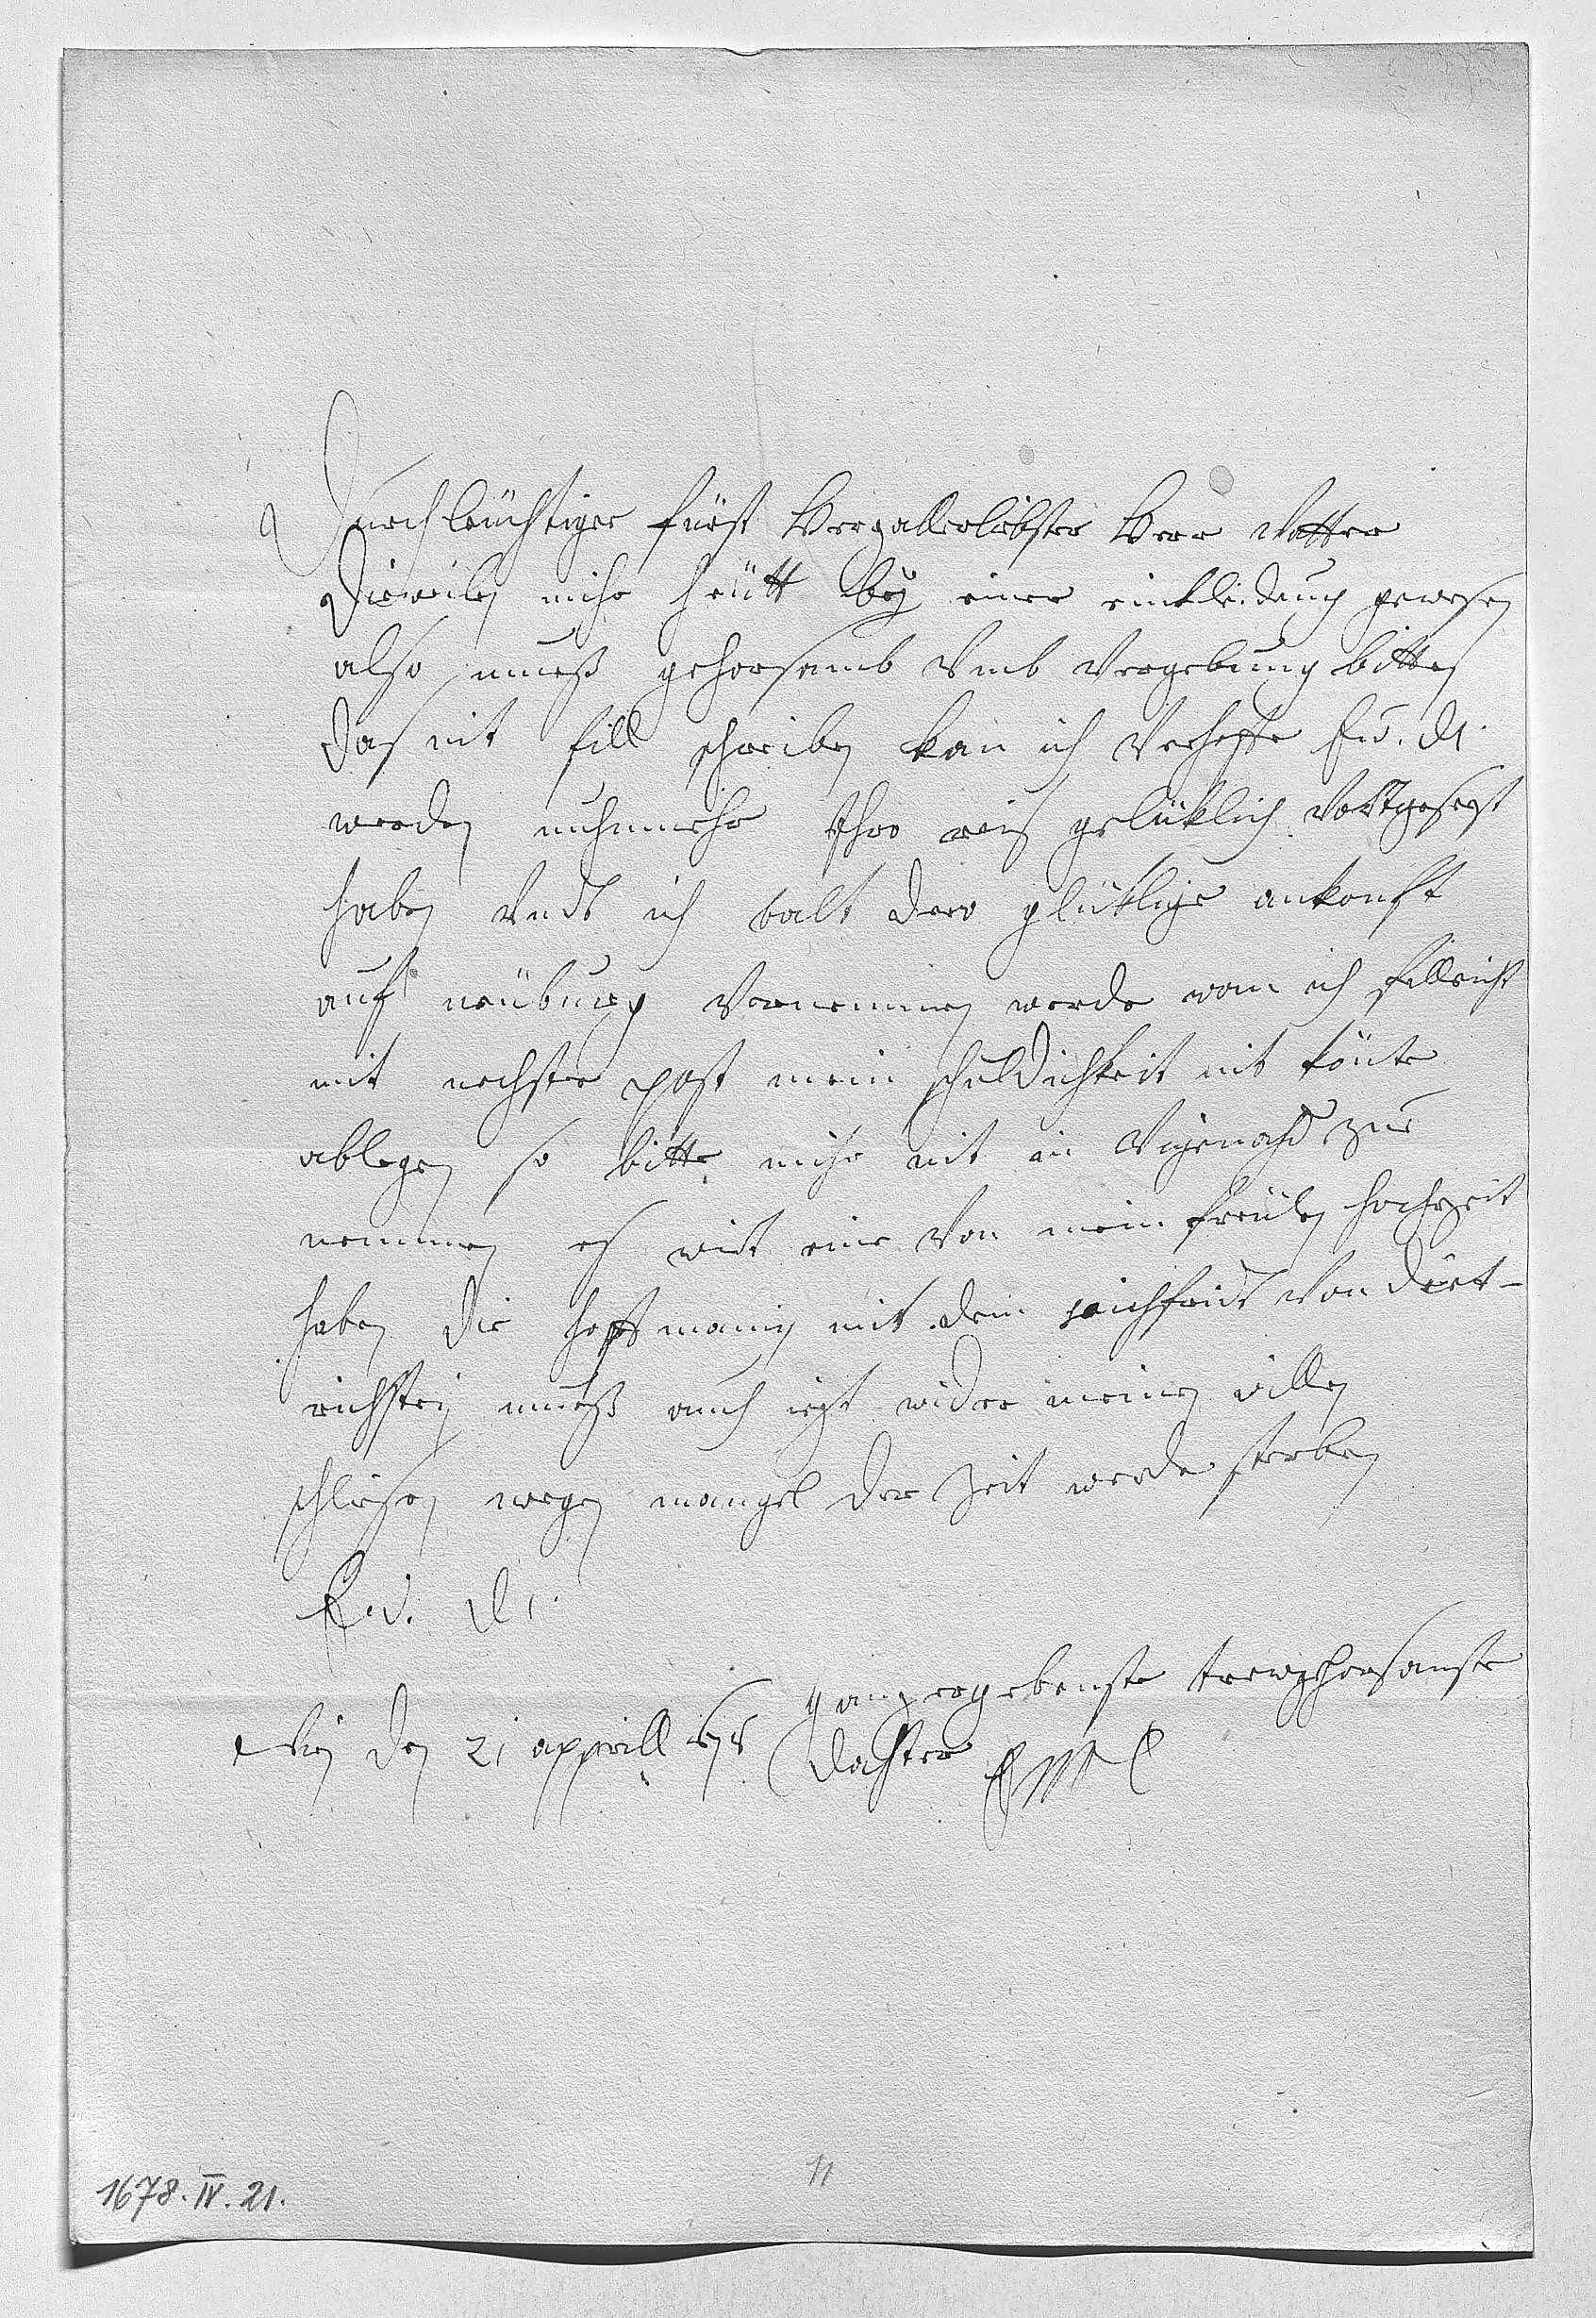 Durchleuchtiger fürst herzallerlibster herr vatter
dieweilen mihr heütt bey einer einkleidung gewesen
also mueß gehorsamb umb vergebung bitten
das nit fill schreiben kan ich verhoffe Ew. Dl.
werden nuhnmehr Ihro reis gelüklich vortgesezt
haben undt ich balt dero glükliche ankonft
auf neüburg vernemmen werde wan ich filleicht
mit nechster post mein schuldichkeit nit könte
ablegen so bitte mihr nit in Ungenadt zue
nemmen es wirt eine von mein freülen hochzeit
haben die hoffmanin mit dem von diet-
richstein mueß auch iezt wider meinen willen
schlißen wegen mangel der Zeit werde sterben
Ew. Dl.
ganz ergebenste trewgehorsamste
Wien den 21 apprill 678 dochter EMT
1678. IV. 21.
11